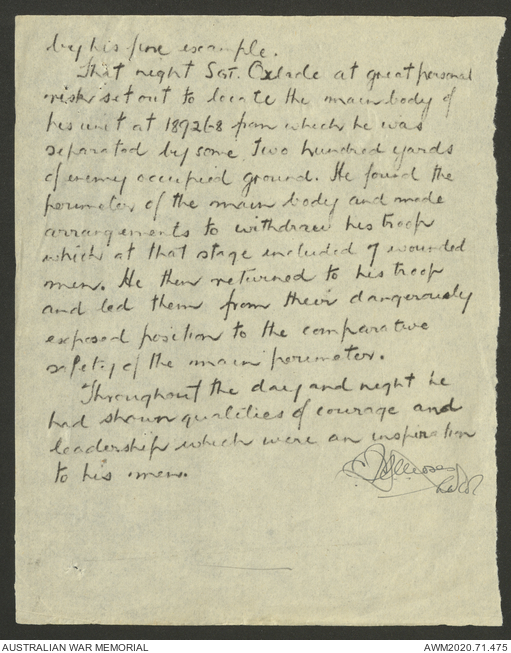 by his fine example.
That night Sgt. Oxlade at great personal
risk set out to locate the main body of
his unit at 189268 from which he was
separated by some two hundred yards
of enemy occupied ground. He found the
perimeter of the main body and made
arrangements to withdraw his troop
which at that stage included 7 wounded
men. He then returned to his troop
and led them from their dangerously
exposed position to the comparative
safety of the main perimeter.
Throughout the day and night he
had shown qualities of courage and
leadership which were an inspiration
to his men.
AUSTRALIAN WAR MEMORIAL
AWM2020.71.475